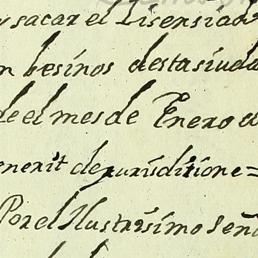 y sacar el Lisensiado
n besinos desta siuda
de el mes de Enero
enerit de jurisditione =
Por el Illustrisimo Seño